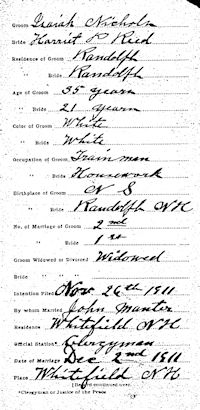 Groom Isaiah Nichols
Bride Harriet P Reed
Residence of Groom Randolph
" Bride Randolph
Age of Groom 35 years
" Bride 21 years
Color of Groom White
" Bride White
Occupation of Groom Train man
" Bride Housework
Birthplace of Groom N S
" Bride Randolph NH
No. of Marriage of Groom 2nd
" Bride 1st
Groom Widowed or Divorced Widowed
Bride " "
Intention Filed Nov 26th 1911
By whom Married John Manter
Residence Whitefield NH
Official Station* Clergyman
Date of Marriage Dec 2nd 1911
Place Whitefield NH
*Clergyman or Justice of the Peace